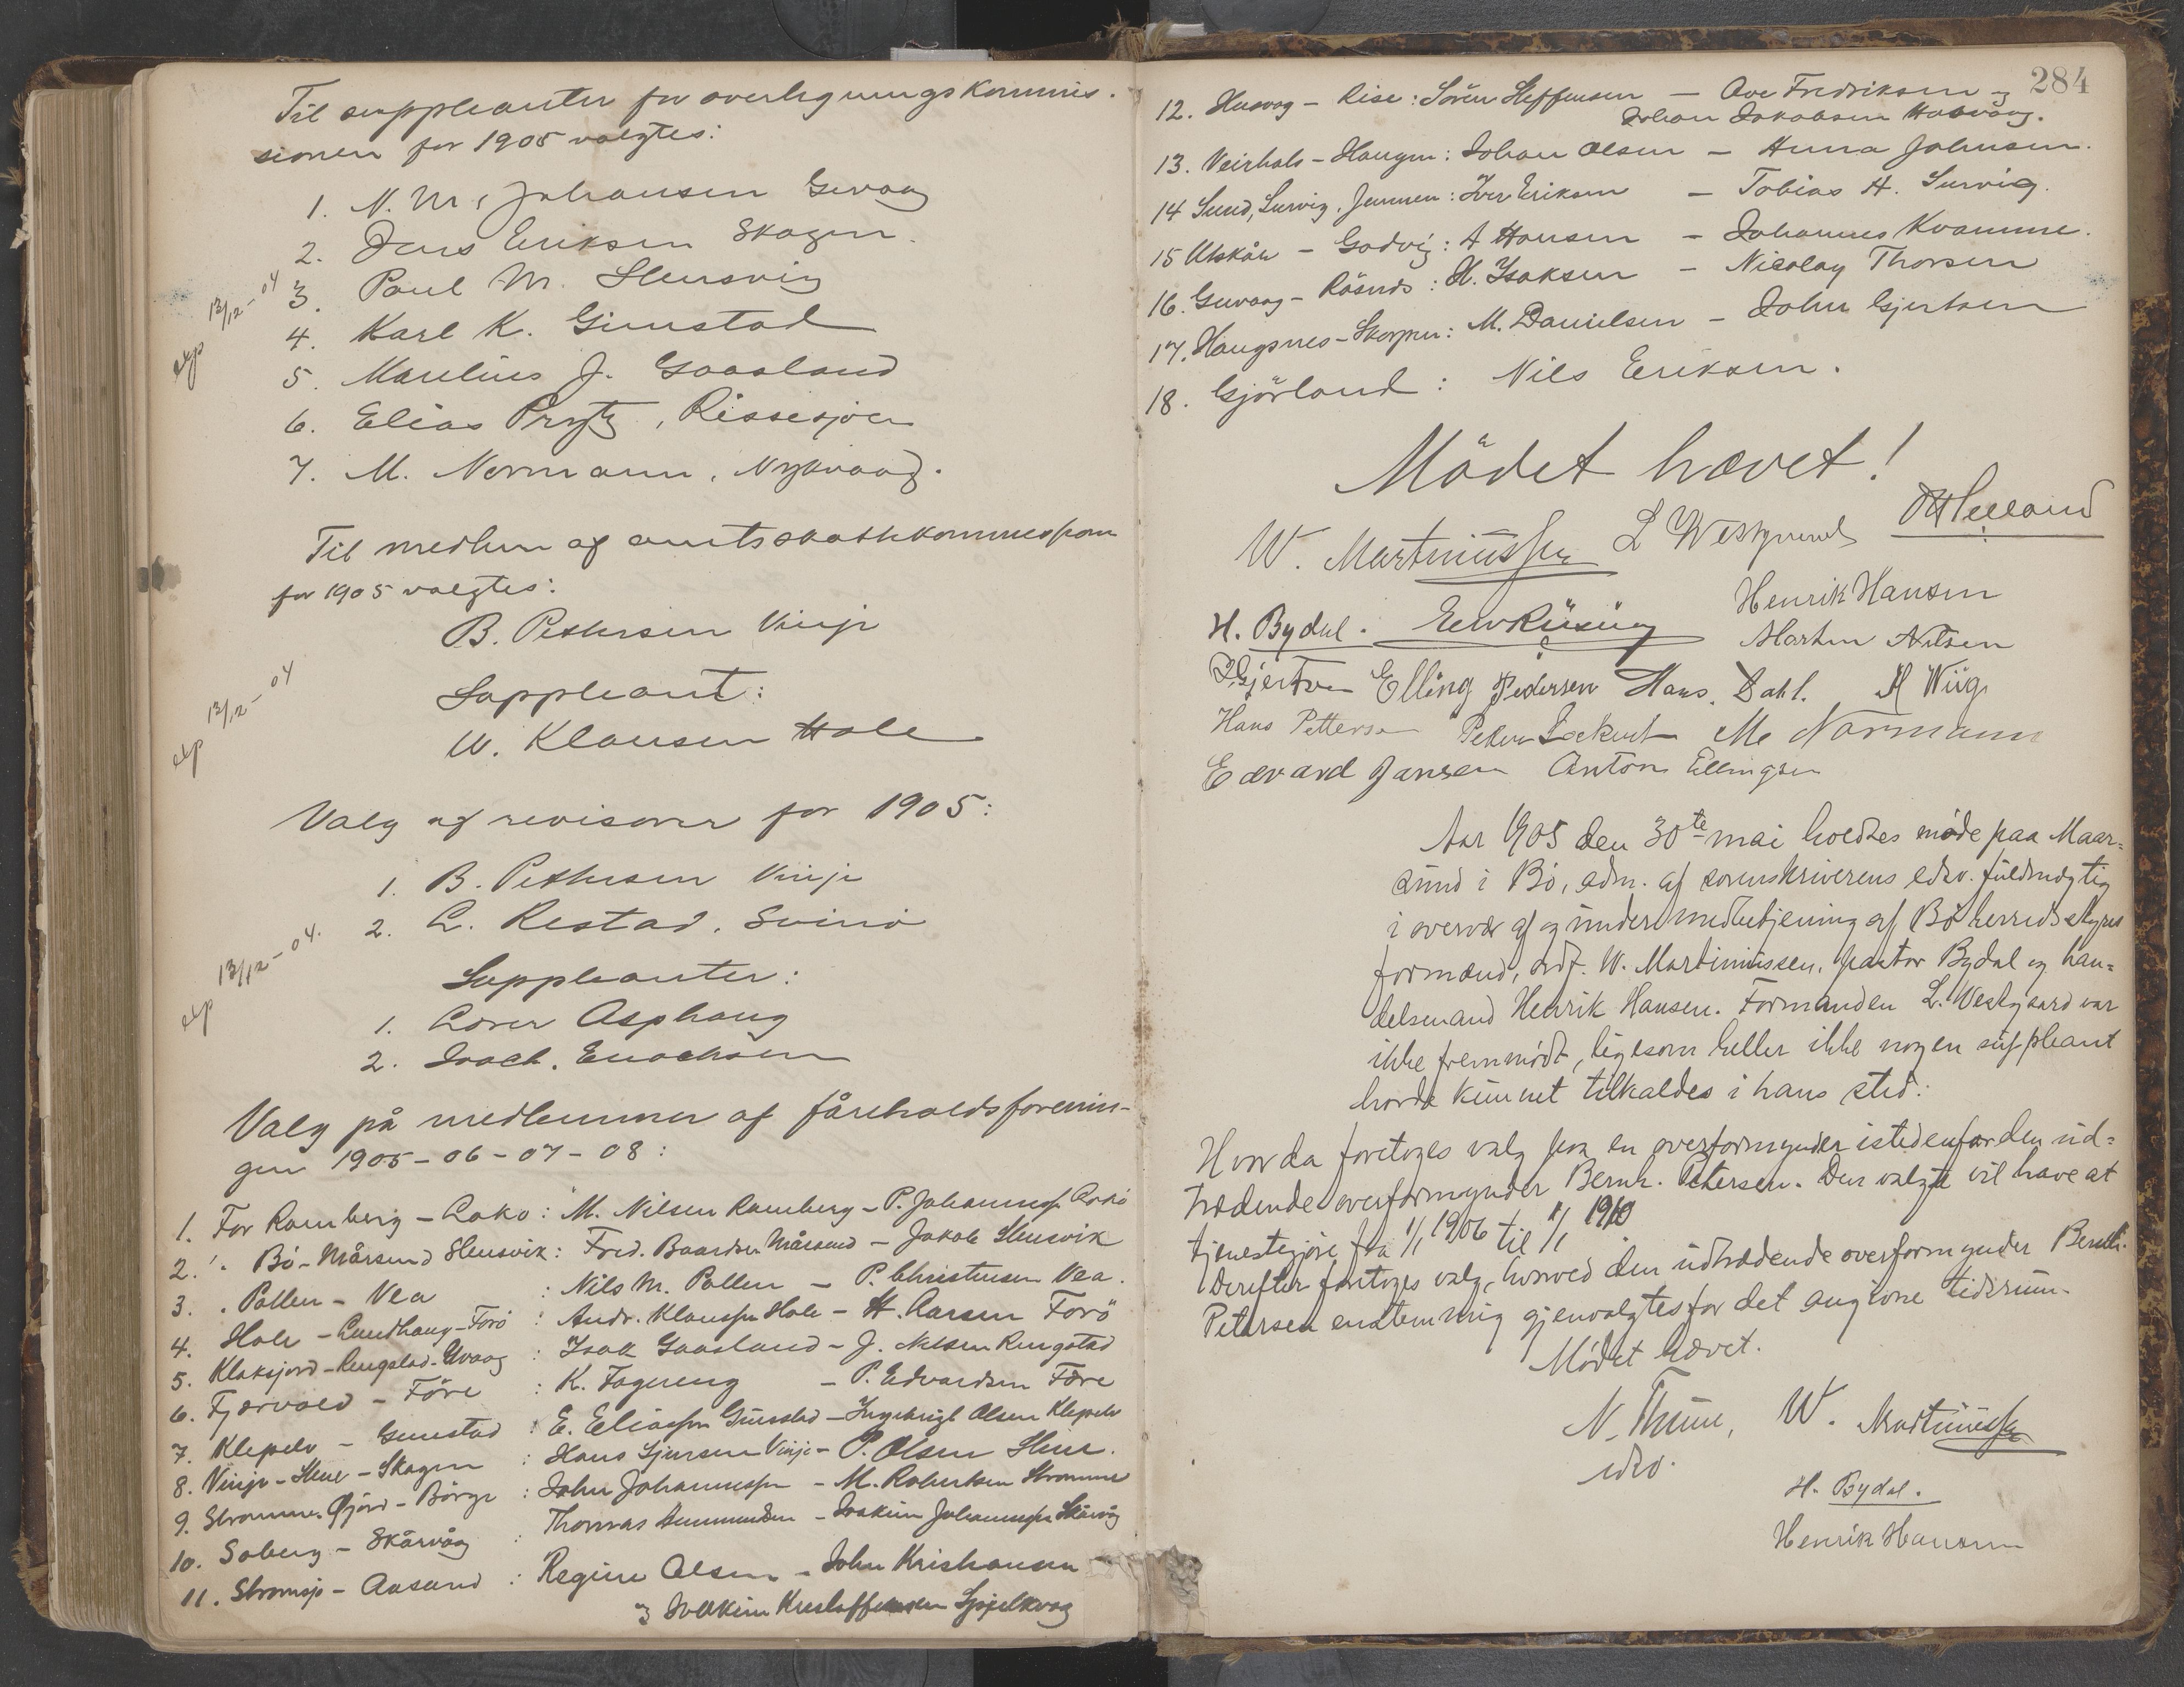 Til suppleanter for overligningskommis-
sionen for 1905 valgtes:
1. N. M. Johansen Guvaag
2. Jens Eriksen Skagen.
3. Paul M. Stensvig
4. Karl K. Gimstad
5. Marelius J. Gaasland
6. Elias Prytz, Rissesjøen
7. M. Normann, Nykvaag.
exp 13/12-04
Til medlem af amtsskattekommissionen
for 1905 valgtes:
B. Pettersen Vinje
Suppleant:
W. Klausen Hole
exp 13/12-04
Valg af revisorer for 1905:
1. B. Pettersen Vinje
2. L. Restad, Svinö
Suppleanter:
1. Lorer Asphaug
2. Isach. Enochsen
exp 13/12-04.
Valg på medlemmer af fåreholdsforenin-
gen 1905-06-07-08:
1. For Ramberg - Lokø: M. Nilsen Ramberg - P. Johannesen Lokø
2. " Bö - Mårsund Stensvik: Fred. Baardsen Mårsund - Jakob Stensvik
3. " Pollen - Vea : Nils M. Pollen - P. Christensen Vea.
4. Hole - Lundhaug - Forö : Andr. Klaussen Hole - H. Larsen Forö
5. Klaksjord - Ringstad - Uvaag : Isak Gaasland - J. Nilsen Ringstad
6. Fjærvold - Före : K. Fagereng - P. Edvardsen Føre
7. Klepelv - Gimstad : E. Eliassen Gimstad - Ingebrigt Olsen Klepelv
8. Vinje - Stene - Skagen : Hans Sjursen Vinje - P. Olsen Stene.
9. Stramme, Øjord - Börge : John Johannessen - M. Robertsen Stramme
10. Soberg - Skårvåg : Thomas - Joakim Johannessen Skårvåg
11. Stromsjø - Aasand : Regine Olsen - John Kristiansen
og Joakim Kristoffersen Spjelkvog
284
12. Husvog - Rise: Sören Steffensen - Ove Fredriksen og
Johan Jakobsen Hovvaag.
13. Veirhals - Haugen: Johan Olsen - Anna Johnsen.
14 Sund, Survig, Jennen: Iver Eriksen - Tobias H. Survig.
15 Utskår - Godvig: A Hansen - Johannes Kvamme.
16. Guvaag - Råsnes: H. Isaksen - Nicolay Thorsen
17. Haugsnes - Skorpen: M. Danielsen - John Gjertsen
18. Gjörland: Nils Eriksen.
Mödet hævet!
W. Martinussen L Westgaard
H. Bydal. Henrik Hansen
Martin Nilsen
J. Gjertsen Elling Pedersen Hans Dahl. H Wiig
Hans Pettersen Peder Lockert M Normann
Edvard Jansen Anton Ellingsen
Aar 1905 den 30te mai holdtes møde paa Maar=
sund i Bö, adm. af sorenskriverens edsv. fuldmægtig
i overvær af og under medbetjening af Bö herredsstyres
formænd, ordf. W. Martinussen, pastor Bydal og han=
delsmand Henrik Hansen. Formanden L. Westgaard var
ikke fremmödt, ligesom heller ikke nogen suppleant
havde kunnet tilkaldes i hans sted:
Hvorda foretoges valg paa en overformynder istedenfor den ud=
trædende overformynder Bernh. Petersen. Den valgte vil have at
tjenestegjöre fra 1/1 1906 til 1/1 1910
Derefter foretoges valg, hvorved den udtrædende overformynder Bernh.
Petersen enstemmig gjenvalgtes for det angivne tidsrum.
Mödet hævet.
N. Thune, W. Martinussen
edsv.
H. Bydal.
Henrik Hansen